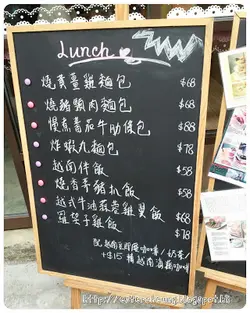 Lunch
燒黃薑雞麵包 $68
燒豬頸肉麵包 $68
慢煮蕃茄牛肋條包 $88
炸蝦丸麵包 $78
越南伴飯 $58
燒香茅豬扒飯 $58
越式牛油蒜蓉雞翼飯 $68
羅望子雞飯 $78
配越南 咖啡/奶茶/
+$15 轉越南滴漏咖啡